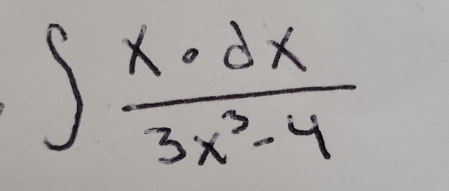 ∫ x · dx
3x³ - 4